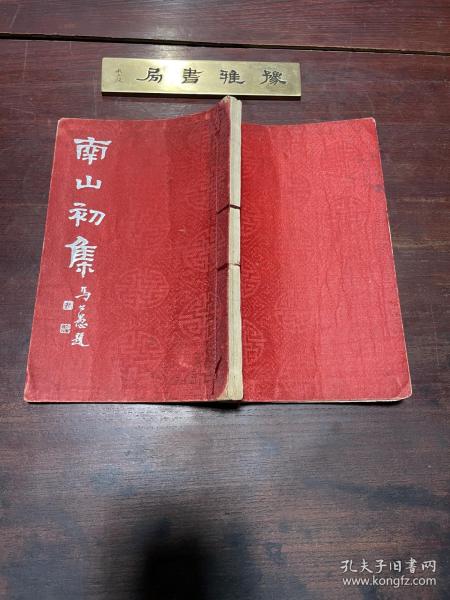 豫雅書局
南山初集
馬公愚題
孔夫子旧书网
www.kongfz.com